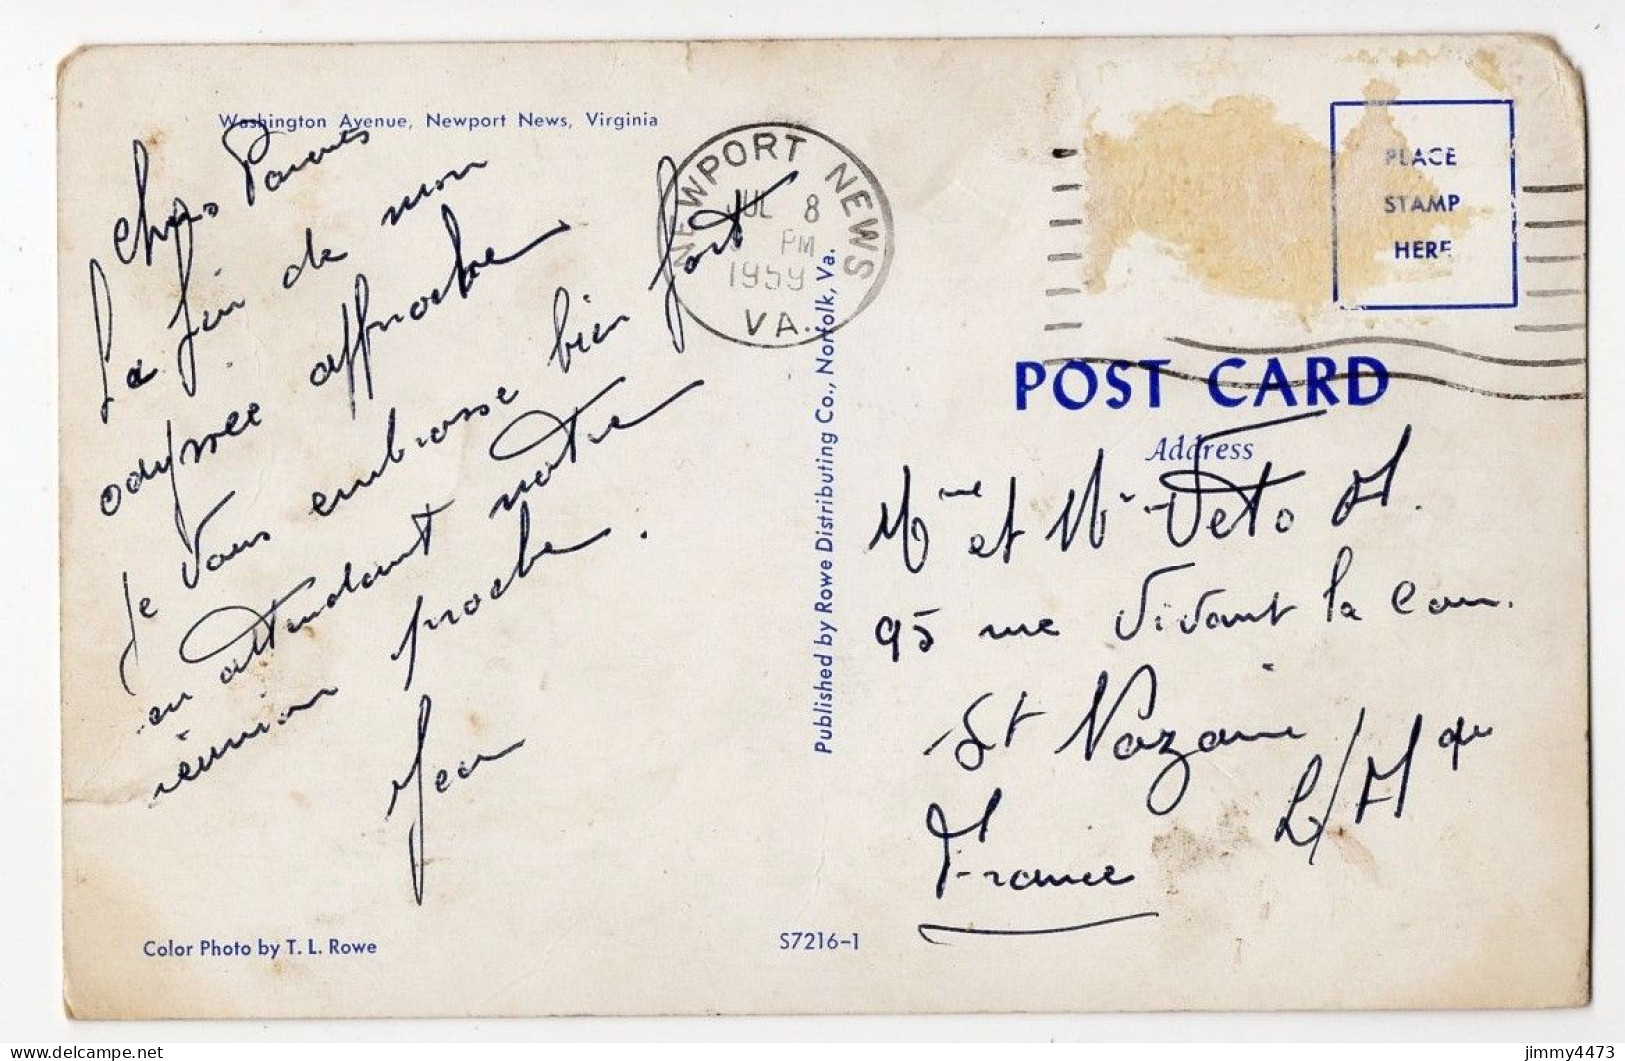 Washington Avenue, Newport News, Virginia
Chers Parents
La fin de mon
odyssée approche
Je vous embrasse bien fort
en attendant notre
réunion proche.
Jean
Color Photo by T. L. Rowe
S7216-1
Published by Rowe Distributing Co., Norfolk, Va.
NEWPORT NEWS
JUL 8
PM
1959
VA.
PLACE
STAMP
HERE
POST CARD
Address
Mme et Mr Veto
95 rue Vivant la Cou.
St Nazaire
L/A que
France
jimmy4473 - delcampe.net